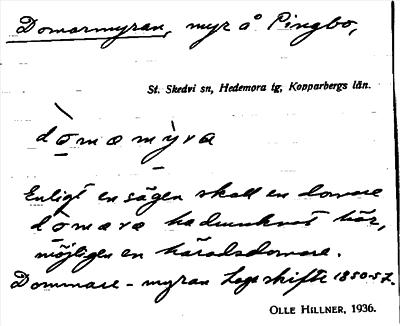 Domarmyran, myr å Pingbo,
St. Skedvi sn, Hedemora tg, Kopparbergs län.
dòmamỳra
Enligt en sägen skall en domare
dòmara ha drunknat här,
möjligen en häradsdomare.
Dommare-myran Laga skifte 1850-57.
OLLE HILLNER, 1936.